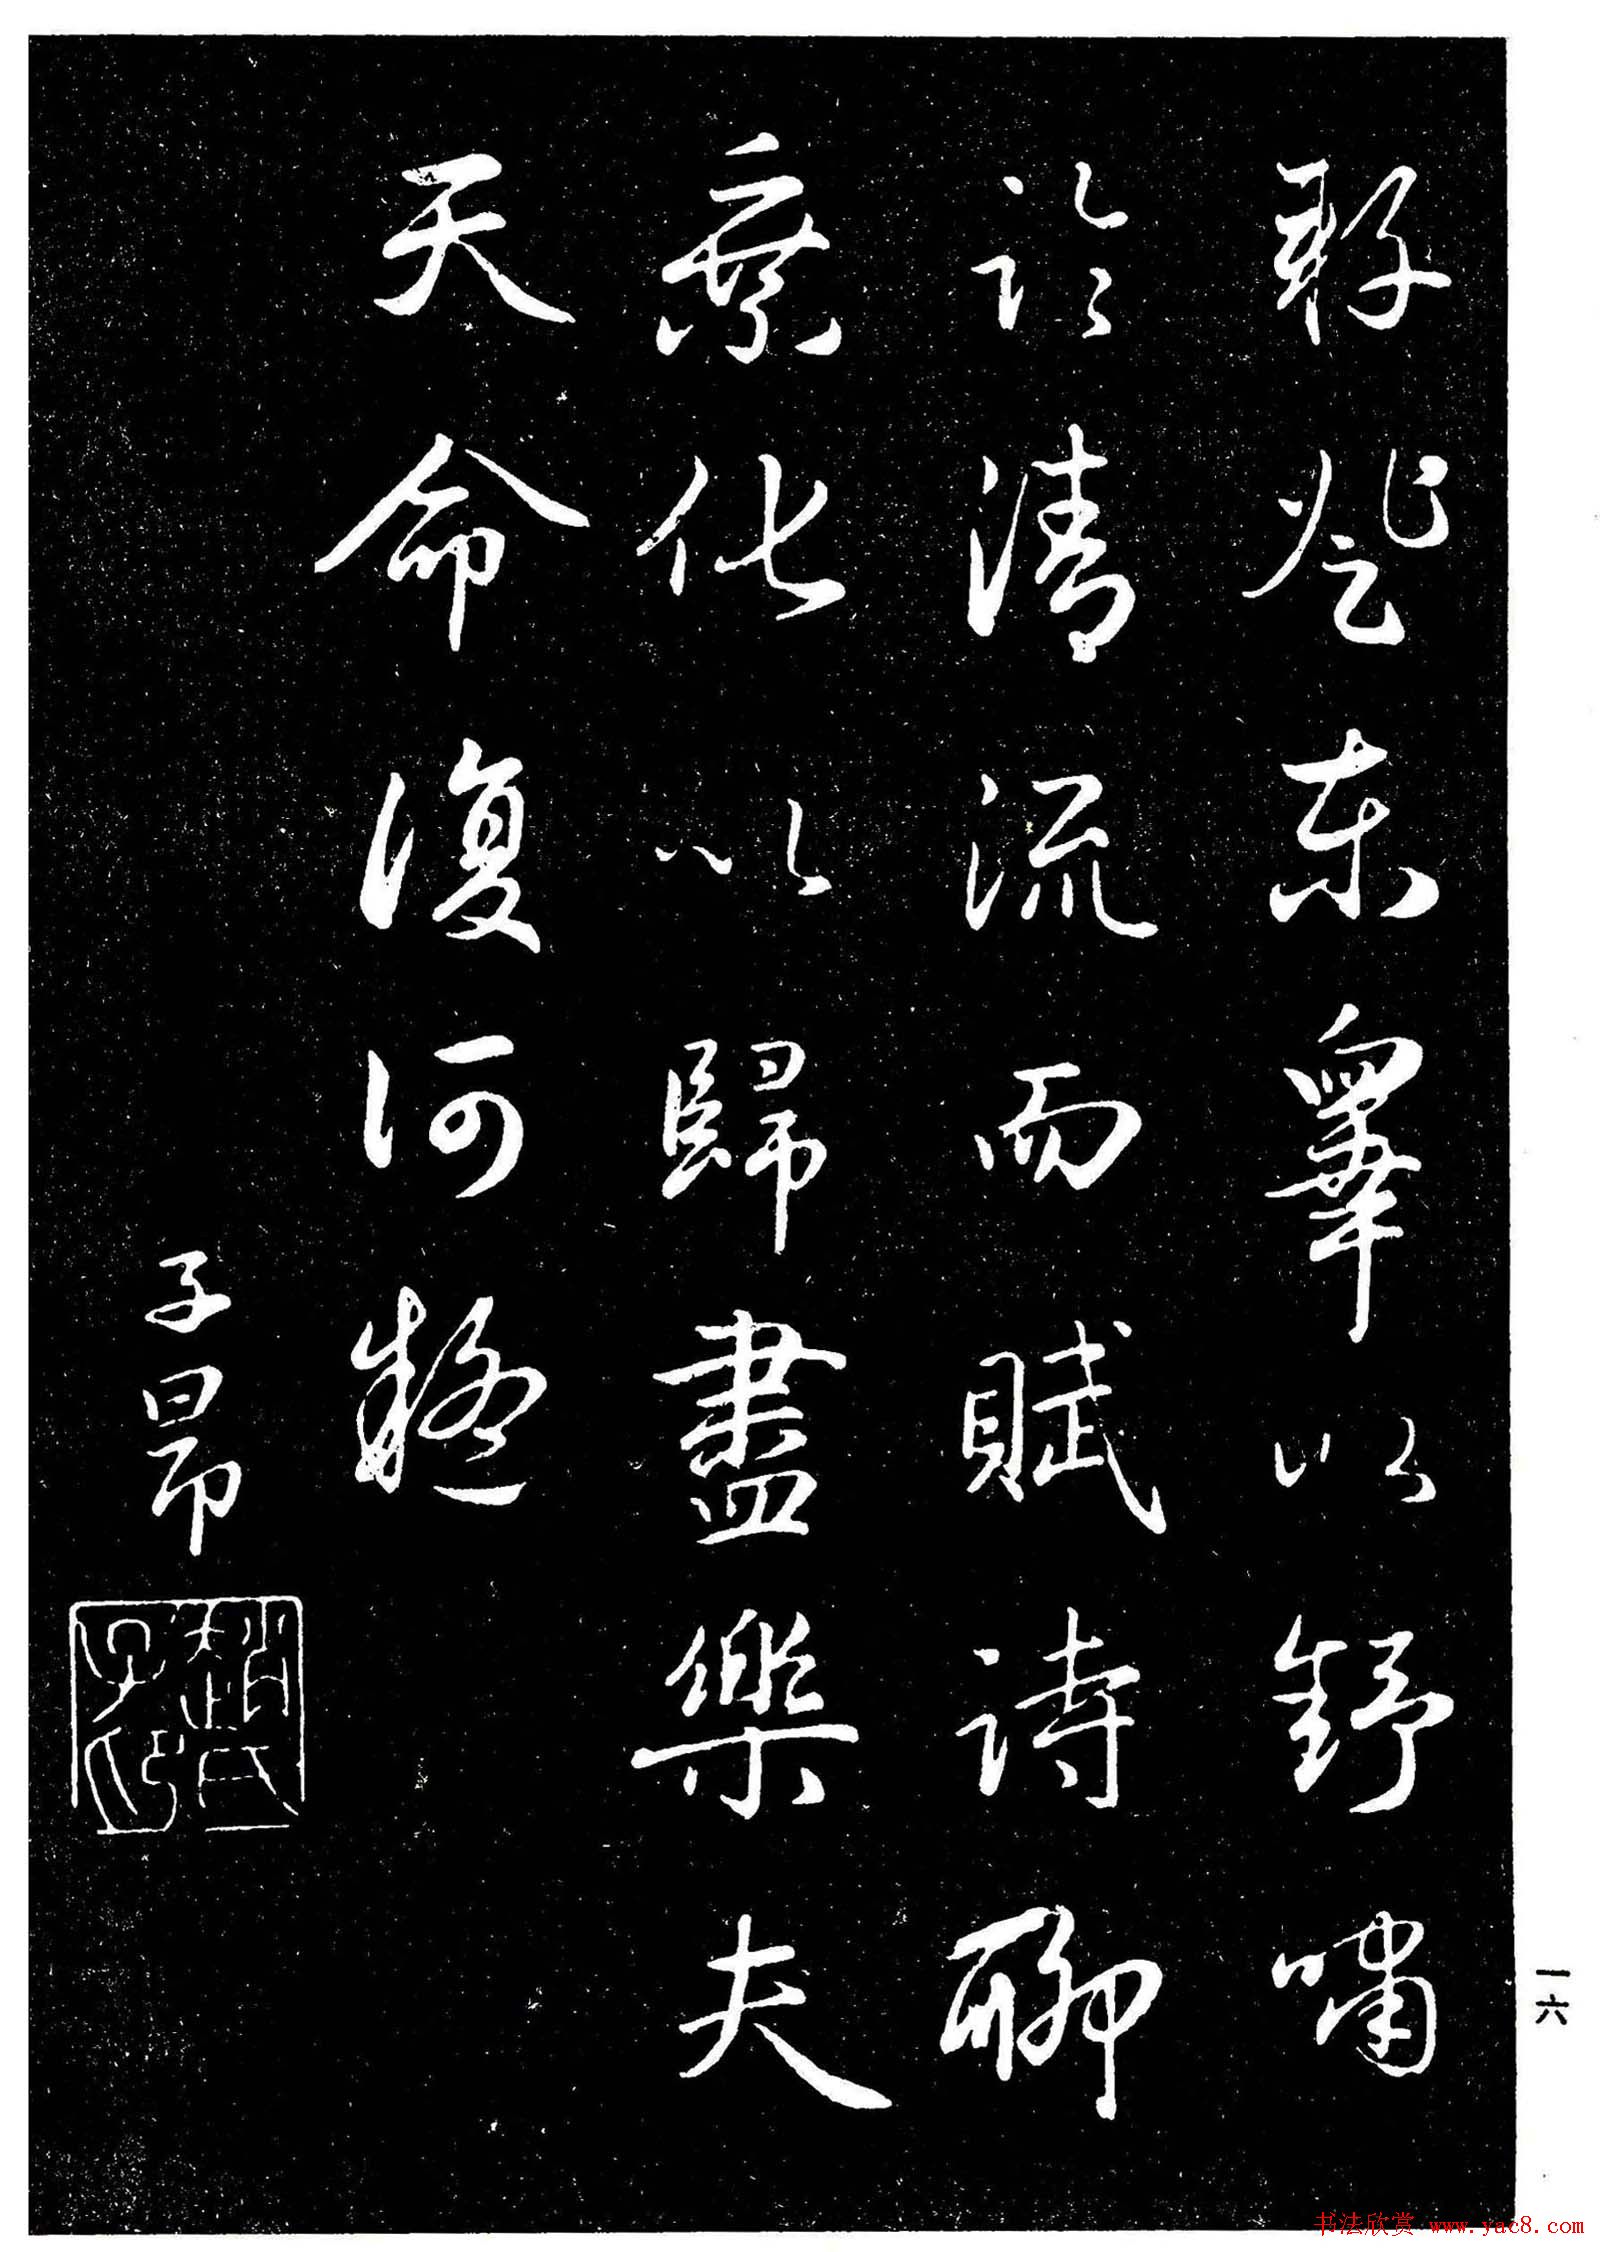 耔登東皋以舒嘯
臨清流而賦詩聊
乘化以歸盡樂夫
天命復何疑
子昂
趙氏子昂
一六
书法欣赏 www.yac8.com